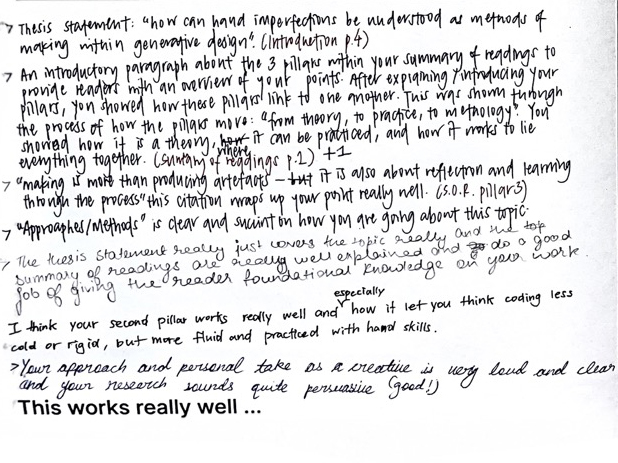 > Thesis statement: "how can hand imperfections be understood as methods of
making within generative design". (Introduction p.4)
> An introductory paragraph about the 3 pillars within your summary of readings to
provide readers with an overview of your points. After explaining/introducing your
pillars, you showed how these pillars link to one another. This was shown through
the process of how the pillars move: "from theory, to practice, to methology". You
showed how it is a theory, how where it can be practiced, and how it works to tie
everything together. (sumary of readings p.2) +1
> "making is more than producing artefacts – but it is also about reflection and learning
through the process" this citation wraps up your point really well. (S.O.R. pillar 3)
> "Approaphes/Methods" is clear and sucint on how you are going about this topic.
> The thesis statement really just covers the topic really and the top
summary of readings are really well explained and do a good
job of giving the reader foundational knowledge on your work.
I think your second pillar works really well and especially how it let you think coding less
cold or rigid, but more fluid and practiced with hand skills.
> Your approach and personal take as a creative is very loud and clear
and your research sounds quite persuasive (good!)
This works really well ...